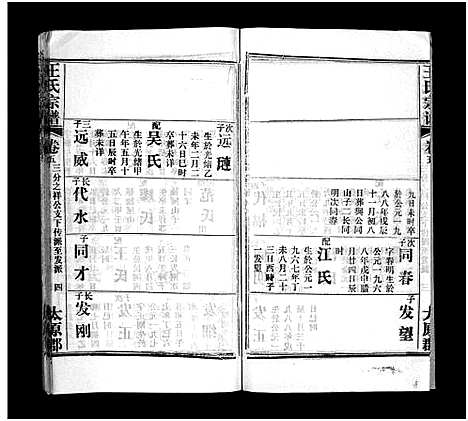 王氏宗谱
卷五
九日未时卒
於公元一九
八八年戊辰
十一月初八
日葬獨公同
山子二长同
明次同春
次子
同春
字春明生於
公元一九六
八年戊申腊
月廿四日辰
时
配
江氏
生於公元一
九六七年丁
未八月二十
三日酉时子
一发望
子
发望
太原郡
次子
远琏
生於光绪乙
未年二月二
十六日巳时
卒葬未详
配
吴氏
生於光绪甲
午年五月十
五日辰时卒
葬未详
三子
远威
长子
代水
子
同才
长子
发刚
王氏宗谱
卷五
三分之祥公支下传派至发派
四
太原郡